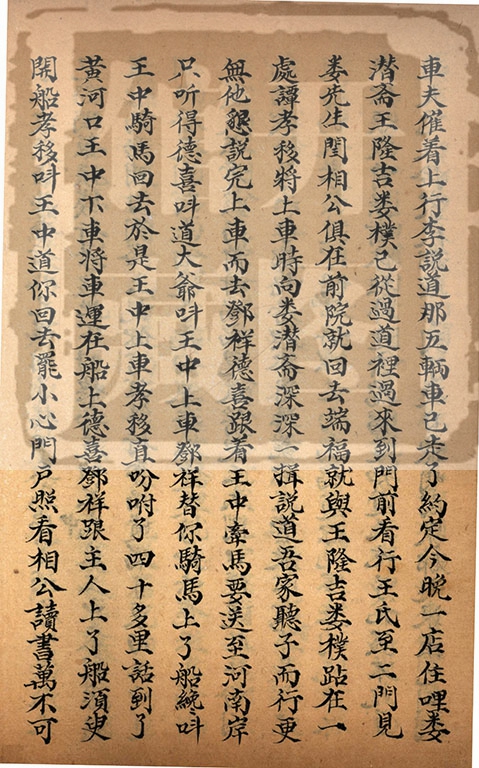 車夫催着上行李說道那五輛車已走了約定今晚一店住哩婁
潛齋王隆吉婁樸已從過道裡過來到門前看行王氏至二門見
婁先生閻相公俱在前院就回去端福就與王隆吉婁樸跕在一
處譚孝移將上車時向婁潛齋深深一揖說道吾家聽子而行更
無他懇說完上車而去鄧祥德喜跟着王中牽馬要送至河南岸
只听得德喜呌道大爺呌王中上車鄧祥替你騎馬上了船纔呌
王中騎馬回去於是王中上車孝移直吩咐了四十多里話到了
黃河口王中下車將車運在船上德喜鄧祥跟主人上了船須臾
開船孝移呌王中道你回去罷小心門户照看相公讀書萬不可